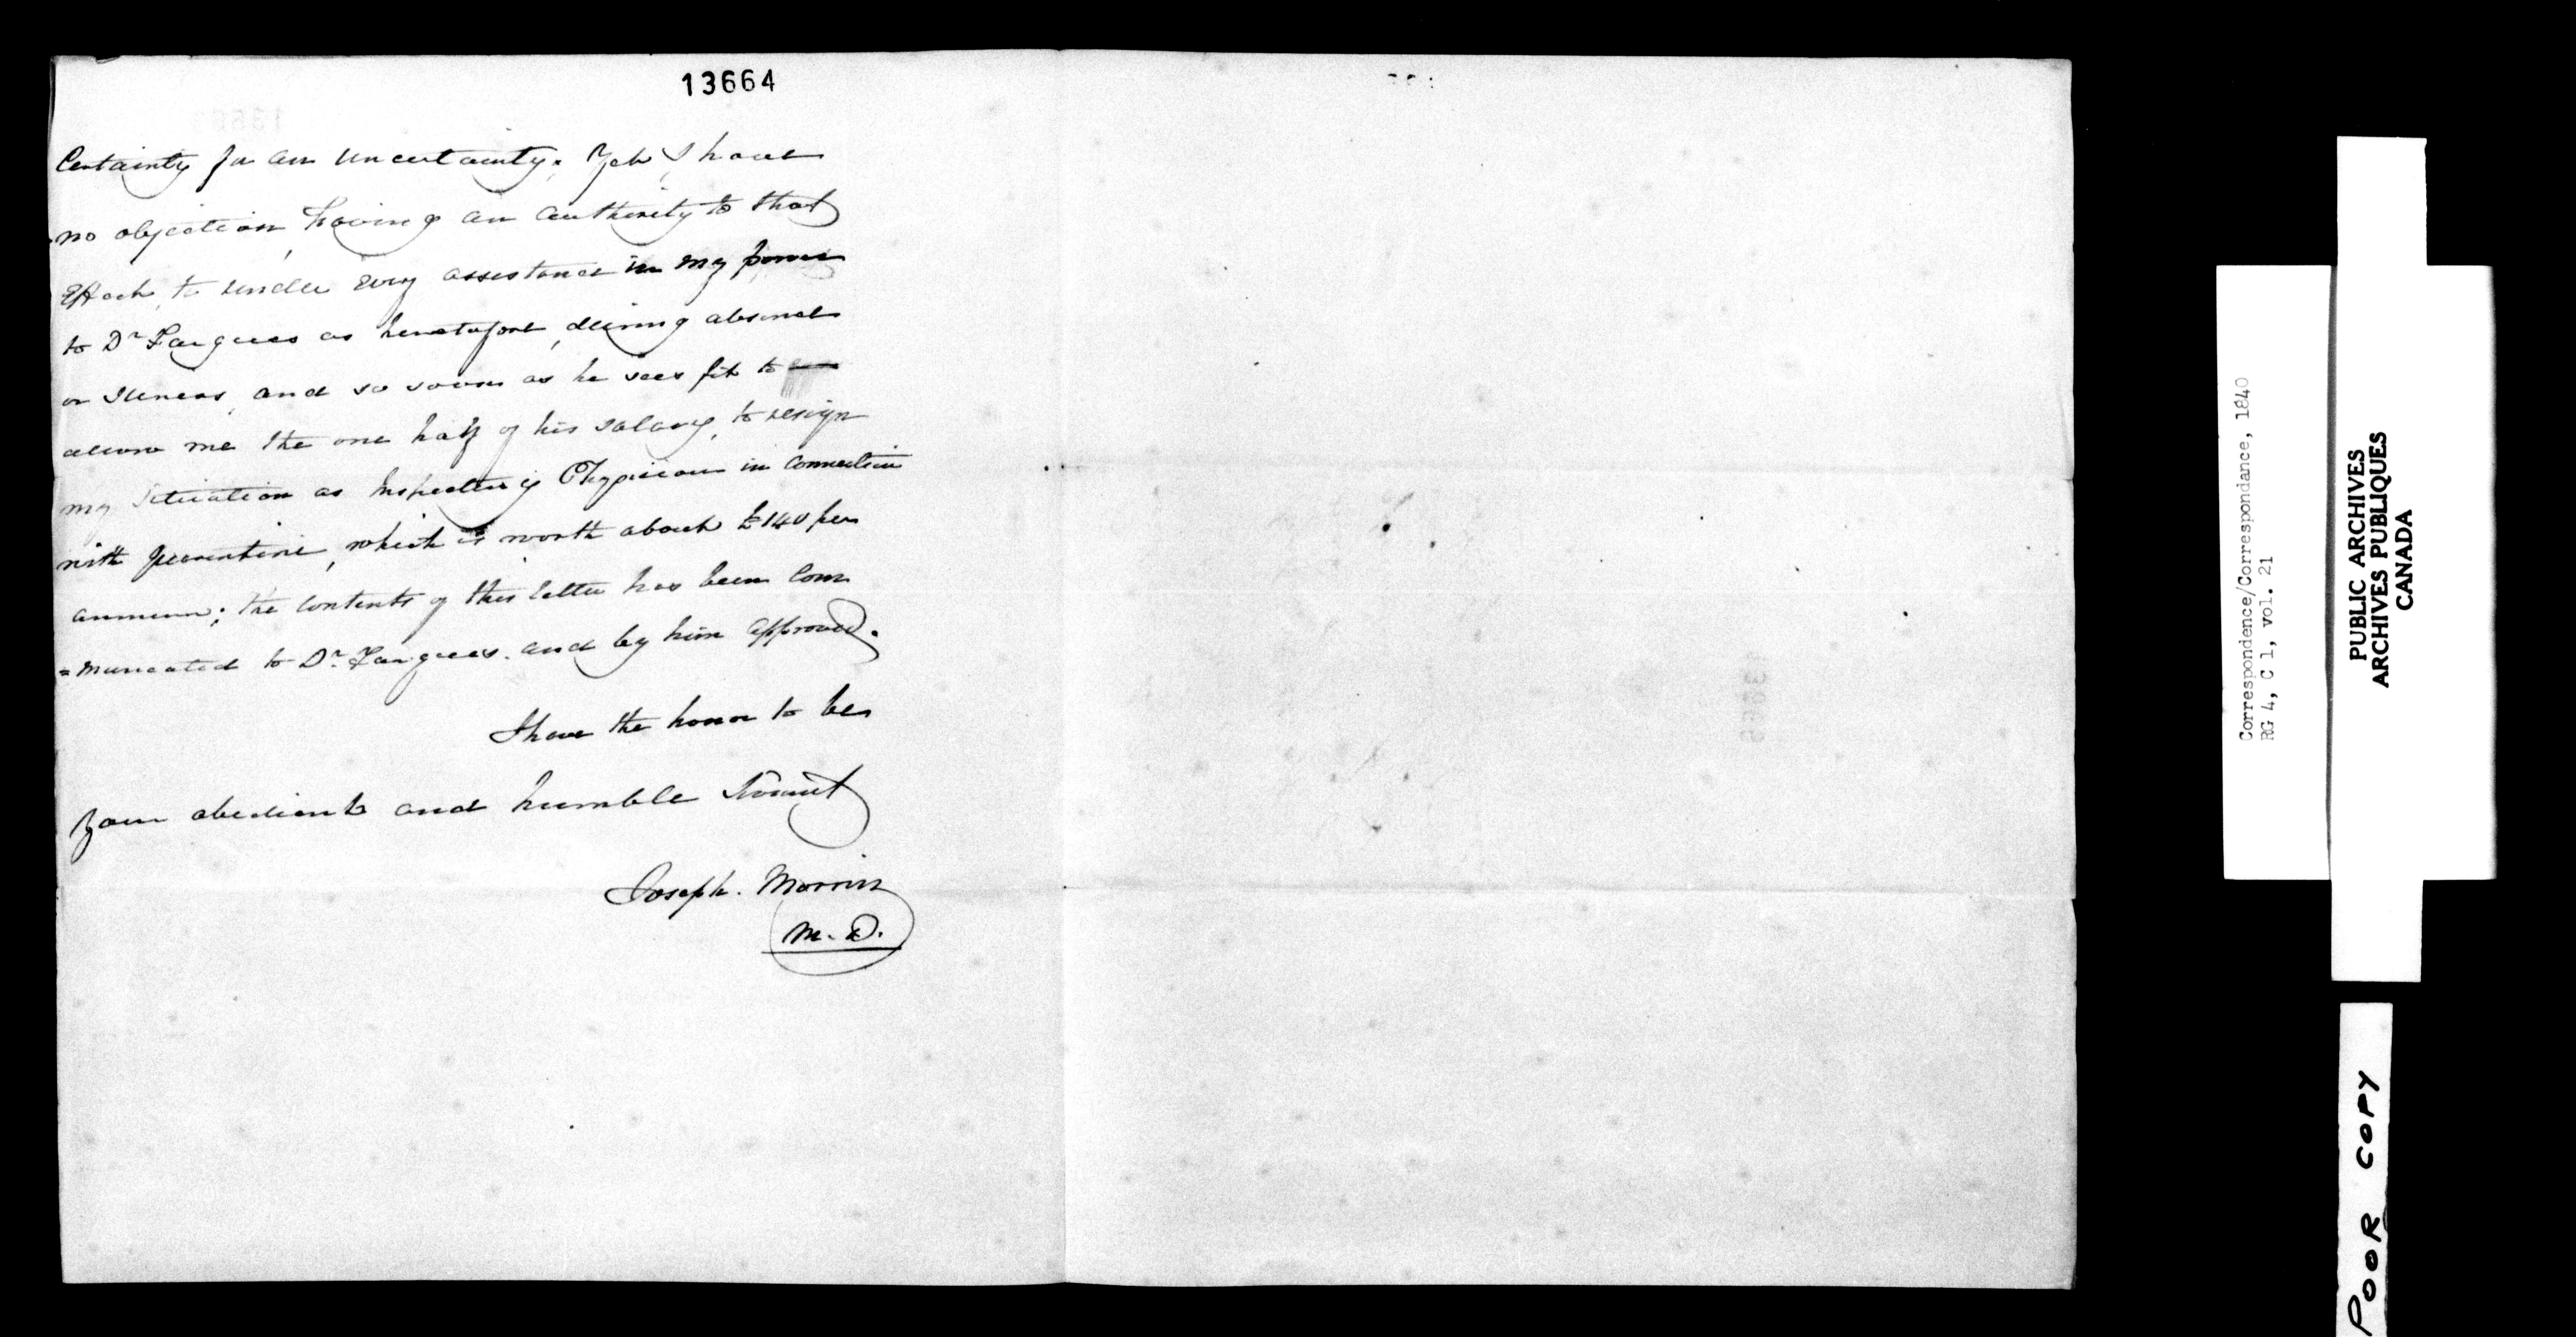 13664
Certainty for an uncertainty. Yet I have
no objection, having an authority to that
Effect, to render every assistance in my power
to Dr Fargues as heretofore, during absence
or Illness, and so soon as he sees fit to
allow me the one half of his salary, to resign
my Situation as Inspecting Physician in Connection
with Quarantine, which is worth about £140 per
annum; the contents of this letter has been com
=municated to Dr. Fargues. and by him approved.
I have the honor to be
Your obedient and humble Servant
Joseph. Morrin
M. D.
Correspondence/Correspondance, 1840
RG 4, C 1, vol. 21
PUBLIC ARCHIVES
ARCHIVES PUBLIQUES
CANADA
POOR COPY